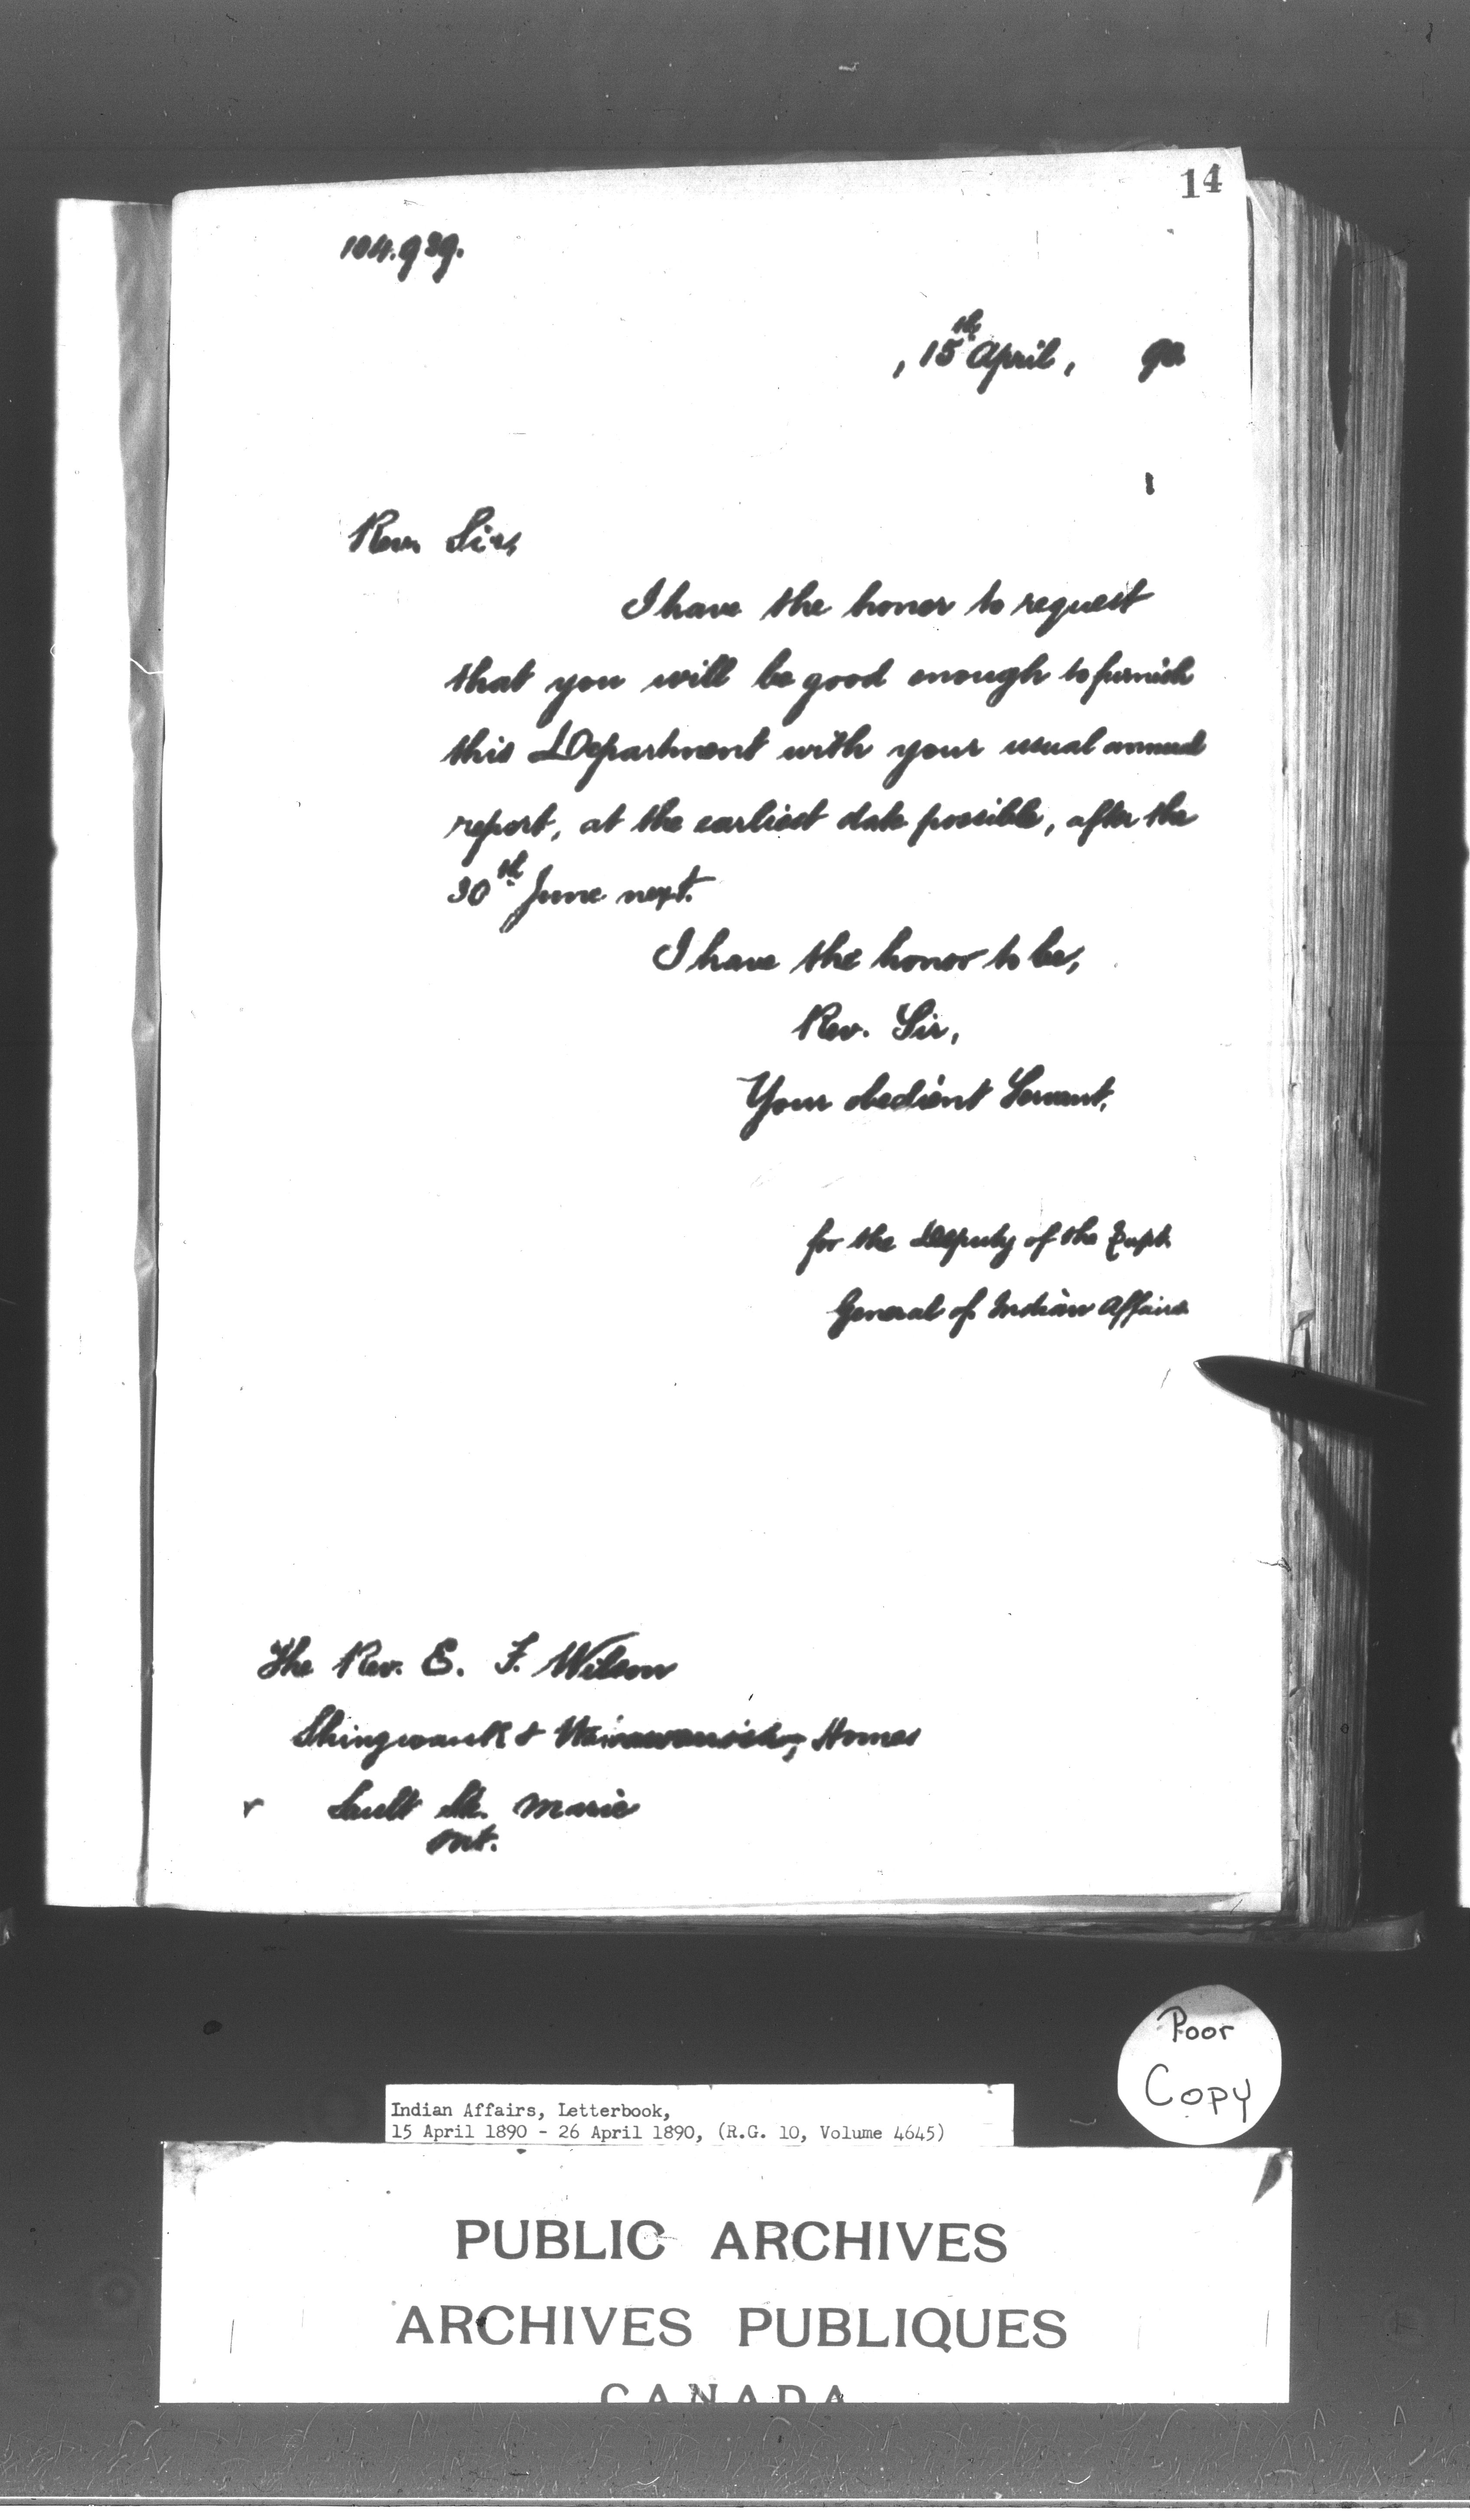 14
104.939.
, 15th April, 90
Rev. Sir,
I have the honor to request
that you will be good enough to furnish
this Department with your usual annual
report, at the earliest date possible, after the
30th June next.
I have the honor to be,
Rev. Sir,
Your obedient Servant,
for the Deputy of the Supt.
General of Indian Affairs
The Rev. E. F. Wilson
Shingwauk & Wawanosh, Homes
Sault Ste. Marie
Ont.
Poor
Copy
Indian Affairs, Letterbook,
15 April 1890 - 26 April 1890, (R.G. 10, Volume 4645)
PUBLIC ARCHIVES
ARCHIVES PUBLIQUES
CANADA